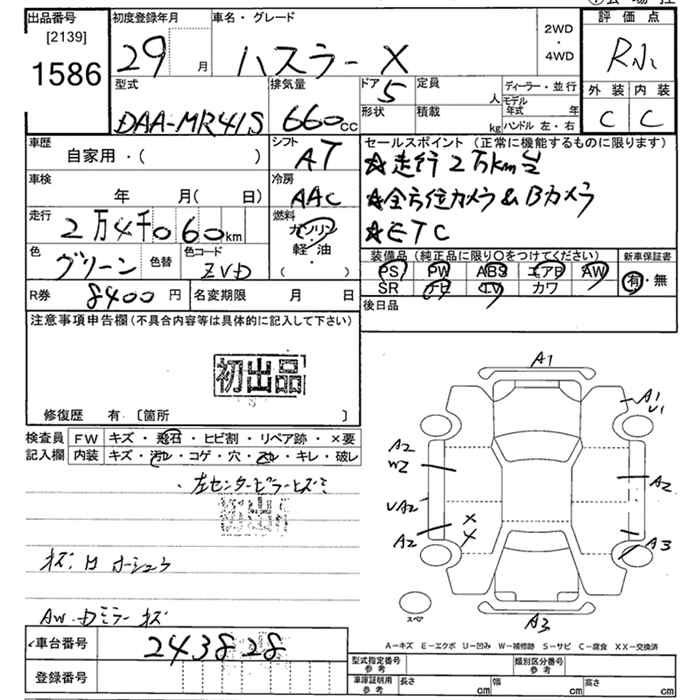 出品番号
[2139]
1586
初度登録年月
29 月
車名・グレード
ハスラー X
2WD
・
4WD
評価点
R
外装 内装
C C
型式
DAA-MR41S
排気量
660 cc
ドア 5
形状
定員 人
積載 kg
ディーラー・並行
モデル年式 年
ハンドル 左・右
車歴
自家用・( )
シフト
AT
車検
年 月( 日)
冷房
AAC
走行
2万4千060 km
燃料
ガソリン
軽・油
( )
色
グリーン
色替
色コード
ZVD
セールスポイント(正常に機能するものに限ります)
☆走行2万km台
☆全方位カメラ&Bカメラ
☆ETC
装備品(純正品に限り○をつけてください)
新車保証書
PS PW ABS エアB AW
SR ナビ TV カワ
有・無
R券 8400 円
名変期限 月 日
後日品
注意事項申告欄(不具合内容等は具体的に記入して下さい)
初出品
修復歴 有・〔箇所 〕
検査員
記入欄
FW キズ・飛石・ヒビ割・リペア跡・×要
内装 キズ・汚レ・コゲ・穴・スレ・キレ・破レ
・左センターピラーヒズミ
初出品
AW・Dミラーキズ
車台番号 243828
登録番号
A1
A1
U1
A2
W2
A2
UA2
A2
X
X
A3
スペア
A3
A-キズ E-エクボ U-凹み W-補修跡 S-サビ C-腐食 XX-交換済
型式指定番号
参考
類別区分番号
参考
車庫証明用
参考
長さ cm
幅 cm
高さ cm